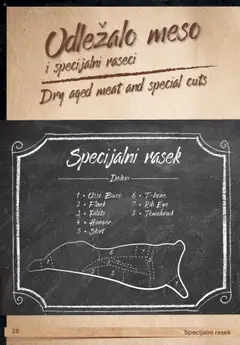 Odležalo meso
i specijalni raseci
Dry aged meat and special cuts
Specijalni rasek
Delovi
1 • Osso Buco
6 • T-bone
2 • Flank
7 • Rib Eye
3 • Plate
8 • Tomahawk
4 • Hanger
5 • Skirt
26
Specijalni rasek